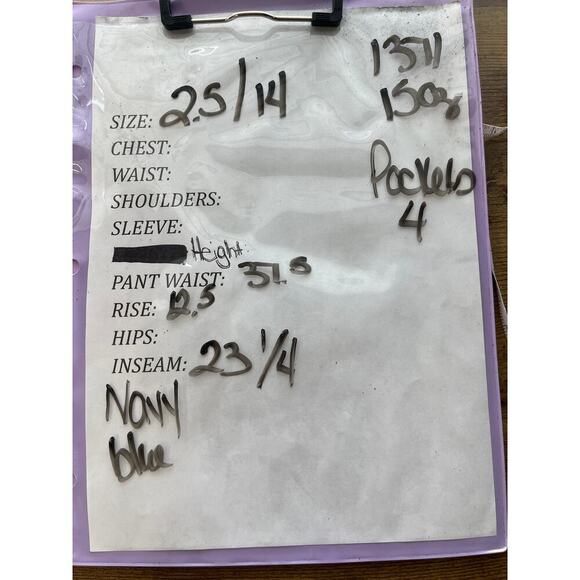 1311
15oz
SIZE: 2.5/14
CHEST:
WAIST:
Pockets
SHOULDERS:
4
SLEEVE:
Height:
PANT WAIST: 37.5
RISE: 12.5
HIPS:
INSEAM: 23 1/4
Navy
blue